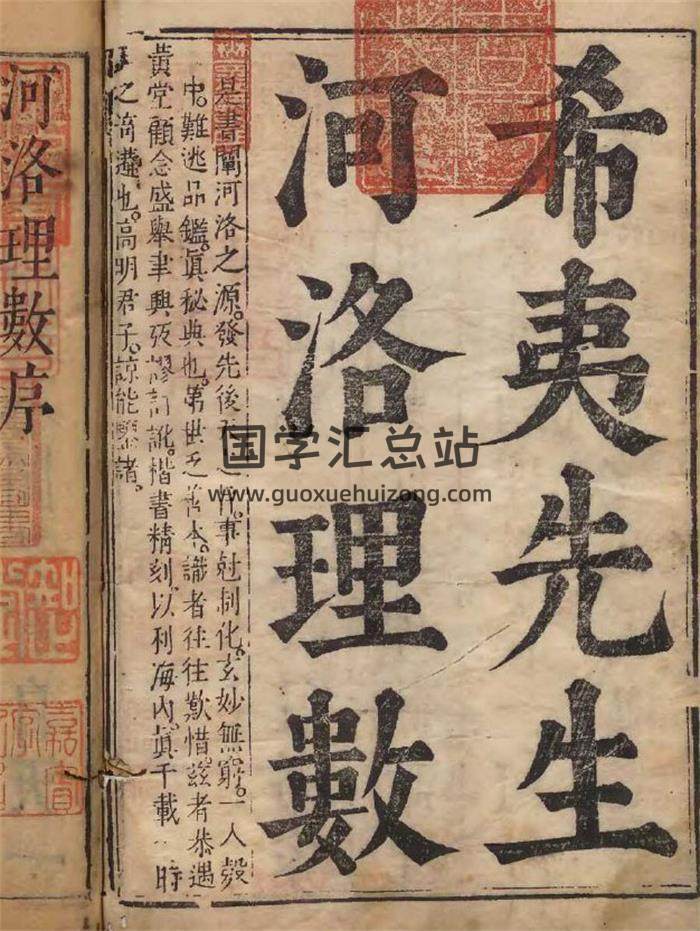 希夷先生
河洛理數
是書闡河洛之源。發先後天之 事。尅制化。玄妙無窮。一人彀
中。難逃品鑑。眞秘典也。第世乏善本。識者往往歎惜。兹者恭遇
黃堂顧念盛舉 興 訛。楷書精刻。以利海內。眞千載一時
之 也。高明君子。諒能鑒諸。
河洛理數序
国学汇总站
www.guoxuehuizong.com